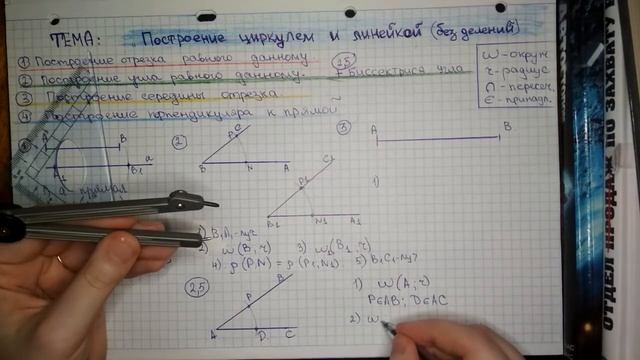 ТЕМА: Построение циркулем и линейкой (без делений)
① Построение отрезка равного данному
② Построение угла равного данному.
2,5 + Биссектриса угла
③ Построение середины отрезка
④ Построение перпендикуляра к прямой
ω - окруж
r - радиус
∩ - пересеч.
∈ - принадл.
A B
A1 B1 a
a - прямая
②
B P C N A
③
A B
1)
B1 P1 C1 N1 A1
1) B1A1 - луч
2) ω(B; r) 3) ω1(B1; r)
4) ρ(P;N) = ρ(P1;N1) 5) B1C1 - луч
2,5
A P B D C
1) ω(A; r)
P∈AB; D∈AC
2) ω
ОТДЕЛ ПРОДАЖ ПО ЗАХВАТУ